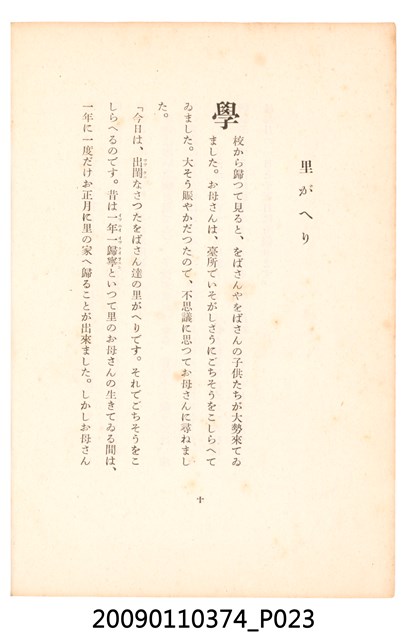 里がへり
學校から歸つて見ると、をばさんやをばさんの子供たちが大勢來てゐ
ました。お母さんは、臺所でいそがしさうにごちそうをこしらへて
ゐました。大そう賑やかだつたので、不思議に思つてお母さんに尋ねまし
た。
「今日は、出閣なさつたをばさん達の里がへりです。それでごちそうをこ
しらへるのです。昔は一年一歸寧といつて里のお母さんの生きてゐる間は、
一年に一度だけお正月に里の家へ歸ることが出來ました。しかしお母さん
十
20090110374_P023